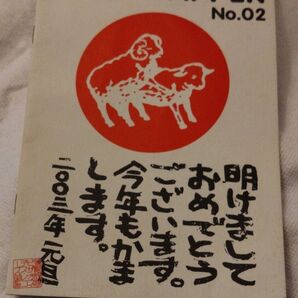 No.02
明けまして
おめでとう
ございます。
今年もかま
します。
二〇〇三年 元旦